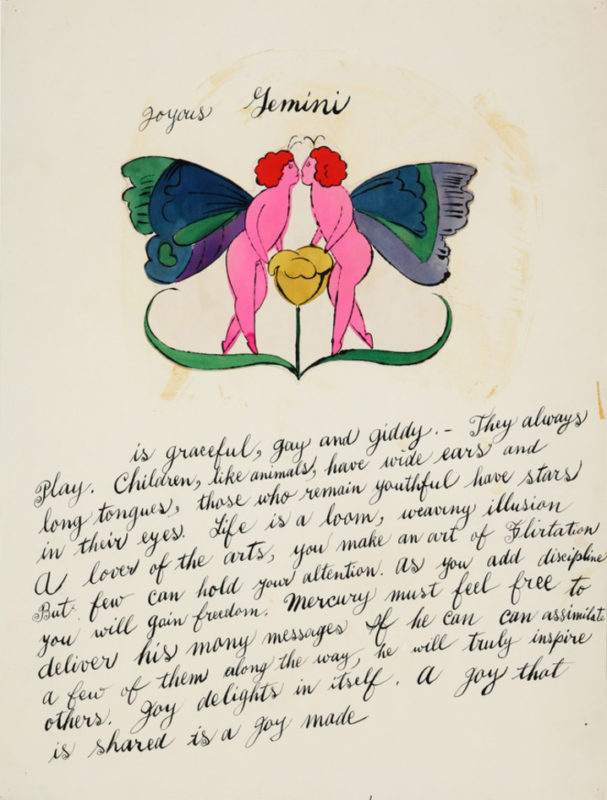 Joyous Gemini
is graceful, gay and giddy. – They always
Play. Children, like animals, have wide ears and
long tongues, those who remain youthful have stars
in their eyes. Life is a loom, weaving illusion
A lover of the arts, you make an art of Flirtation
But few can hold your attention. As you add discipline
you will gain freedom. Mercury must feel free to
deliver his many messages If he can can assimilate
a few of them along the way, he will truly inspire
others. Joy delights in itself. A joy that
is shared is a joy made